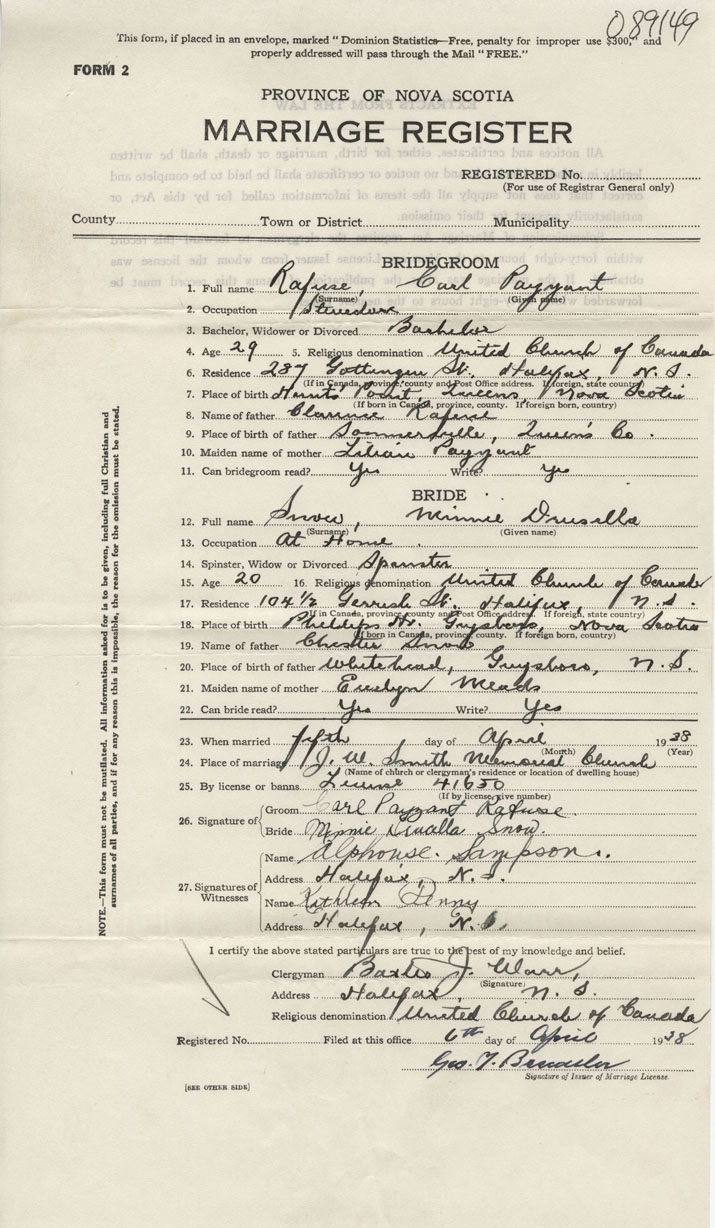 089149
This form, if placed in an envelope, marked "Dominion Statistics—Free, penalty for improper use $300," and
properly addressed will pass through the Mail "FREE."
FORM 2
PROVINCE OF NOVA SCOTIA
MARRIAGE REGISTER
REGISTERED No.
(For use of Registrar General only)
County Town or District Municipality
BRIDEGROOM
1. Full name Rafuse, Carl Payzant
(Surname) (Given name)
2. Occupation Stevedore
3. Bachelor, Widower or Divorced Bachelor
4. Age 29 5. Religious denomination United Church of Canada
6. Residence 287 Gottingen St. Halifax, N. S.
(If in Canada, province, county and Post Office address. If foreign, state country)
7. Place of birth Hunts Point, Queens, Nova Scotia
(If born in Canada, province, county. If foreign born, country)
8. Name of father Clarence Rafuse
9. Place of birth of father Sommerville, Queen's Co.
10. Maiden name of mother Lilian Payzant
11. Can bridegroom read? Yes Write? Yes
BRIDE
12. Full name Snow, Minnie Drusilla
(Surname) (Given name)
13. Occupation At Home
14. Spinster, Widow or Divorced Spinster
15. Age 20 16. Religious denomination United Church of Canada
17. Residence 104 1/2 Gerrish St. Halifax, N. S.
(If in Canada, province, county and Post Office address. If foreign, state country)
18. Place of birth Phillips Hr. Guysboro, Nova Scotia
(If born in Canada, province, county. If foreign born, country)
19. Name of father Chester Snow
20. Place of birth of father Whitehead, Guysboro, N. S.
21. Maiden name of mother Evelyn Meads
22. Can bride read? Yes Write? Yes
23. When married fifth day of April 1938
(Month) (Year)
24. Place of marriage J. W. Smith Memorial Church
(Name of church or clergyman's residence or location of dwelling house)
25. By license or banns License 41650
(If by license, give number)
26. Signature of
Groom Carl Payzant Rafuse.
Bride Minnie Drusilla Snow.
27. Signatures of Witnesses
Name Alphonse. Sampson.
Address Halifax, N. S.
Name Kathleen Penny
Address Halifax, N. S.
I certify the above stated particulars are true to the best of my knowledge and belief.
Clergyman J.
(Signature)
Address Halifax, N. S.
Religious denomination United Church of Canada
Registered No. Filed at this office 6th day of April 1938
Geo. T.
Signature of Issuer of Marriage License.
[SEE OTHER SIDE]
NOTE.—This form must not be mutilated. All information asked for is to be given, including full Christian and
surnames of all parties, and if for any reason this is impossible, the reason for the omission must be stated.